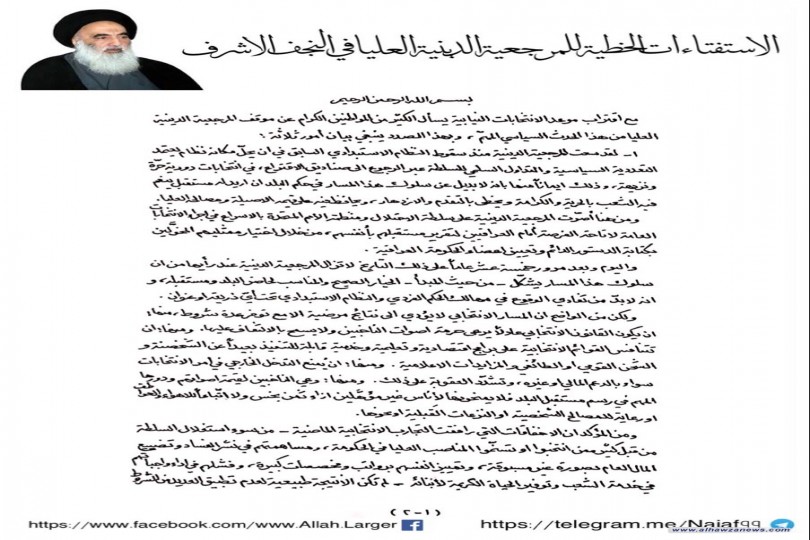 الاستفتاءات الخطية للمرجعية الدينية العليا في النجف الاشرف
بسم الله الرحمن الرحيم
مع اقتراب موعد الانتخابات النيابية يسأل الكثير من المواطنين الكرام عن موقف المرجعية الدينية
العليا من هذا الحدث السياسي المهم ، وبهذا الصدد ينبغي بيان أمور ثلاثة :
١- لقد سعت المرجعية الدينية منذ سقوط النظام الاستبدادي السابق في ان يحلّ مكانه نظام يعتمد
التعددية السياسية والتداول السلمي للسلطة عبر الرجوع الى صناديق الاقتراع ، في انتخابات دورية حرّة
ونزيهة ، وذلك ايماناً منها بانه لا بديل عن سلوك هذا المسار في حكم البلد ان اريد له مستقبل ينعم
فيه الشعب بالحرية والكرامة ويحظى بالتقدم والازدهار ، ويحافظ فيه على قيمه الاصيلة ومصالحه العليا.
ومن هنا أصرّت المرجعية الدينية على سلطة الاحتلال ومنظمة الامم المتحدة بالاسراع في اجراء انتخابات
العامة لاتاحة الفرصة أمام العراقيين لتقرير مستقبلهم بأنفسهم ، من خلال اختيار ممثليهم المخوّلين
بكتابة الدستور الدائم وتعيين اعضاء الحكومة العراقية .
واليوم وبعد مرور خمسة عشر عاماً على ذلك التاريخ لا تزال المرجعية الدينية عند رأيها من ان
سلوك هذا المسار يشكّل - من حيث المبدأ - الخيار الصحيح والمناسب لحاضر البلد ومستقبله ، و
انه لا بدّ من تفادي الوقوع في مهالك الحكم الفردي والنظام الاستبدادي تحت أي ذريعة او عنوان .
ولكن من الواضح ان المسار الانتخابي لا يؤدي الى نتائج مرضية الا مع توفر عدة شروط ، منها :
ان يكون القانون الانتخابي عادلاً يرعى حرمة اصوات الناخبين ولا يسمح بالالتفاف عليها. ومنها: ان
تتنافس القوائم الانتخابية على برامج اقتصادية وتعليمية وخدمية قابلة للتنفيذ بعيداً عن الشخصنة و
الشحن القومي او الطائفي والمزايدات الاعلامية . ومنها: ان يُمنع التدخل الخارجي في امر الانتخابات
سواء بالدعم المالي او غيره ، وتشدّد العقوبة على ذلك . ومنها: وعي الناخبين لقيمة اصواتهم ودورها
المهم في رسم مستقبل البلد فلا يمنحونها لأناس غير مؤهلين ازاء ثمن بخس ولا اتباعاً للاهواء والعواطف
او رعاية للمصالح الشخصية او النزعات القبلية او نحوها.
ومن المؤكد ان الاخفاقات التي رافقت التجارب الانتخابية الماضية - من سوء استغلال السلطة
من قبل كثير ممن انتخبوا او تسنّموا المناصب العليا في الحكومة ، ومساهمتهم في نشر الفساد وتضييع
المال العام بصورة غير مسبوقة ، وتمييز انفسهم برواتب ومخصصات كبيرة ، وفشلهم في اداء واجباتهم
في خدمة الشعب وتوفير الحياة الكريمة لأبنائه - لم تكن الا نتيجة طبيعية لعدم تطبيق العديد من الشروط
(١-٢)
https://www.facebook.com/www.Allah.Larger
https://telegram.me/Najaf99
www.alhawzanews.com